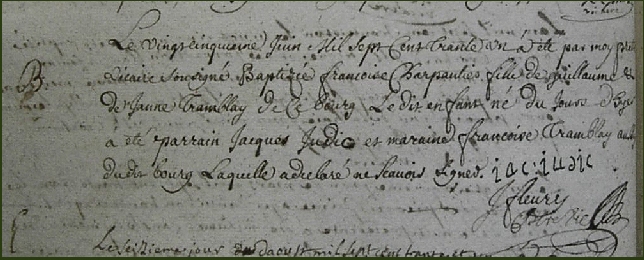 Le vingtcinquieme Juin Mil sept Cent Trente un à été par moy
vicaire soussigné Baptizée françoise Charpautier fille de guillaume &
de Janne Tramblay de Ce bourg Le dit enfant né du Jours d'hyer
a été parrain Jacques Judic et maraine françoise Tramblay aussi
dudit bourg Laquelle a declaré ne scavoir signer. iac : iudic
B
J fleury
Le seizieme jour daoust mil sept cent trente et un